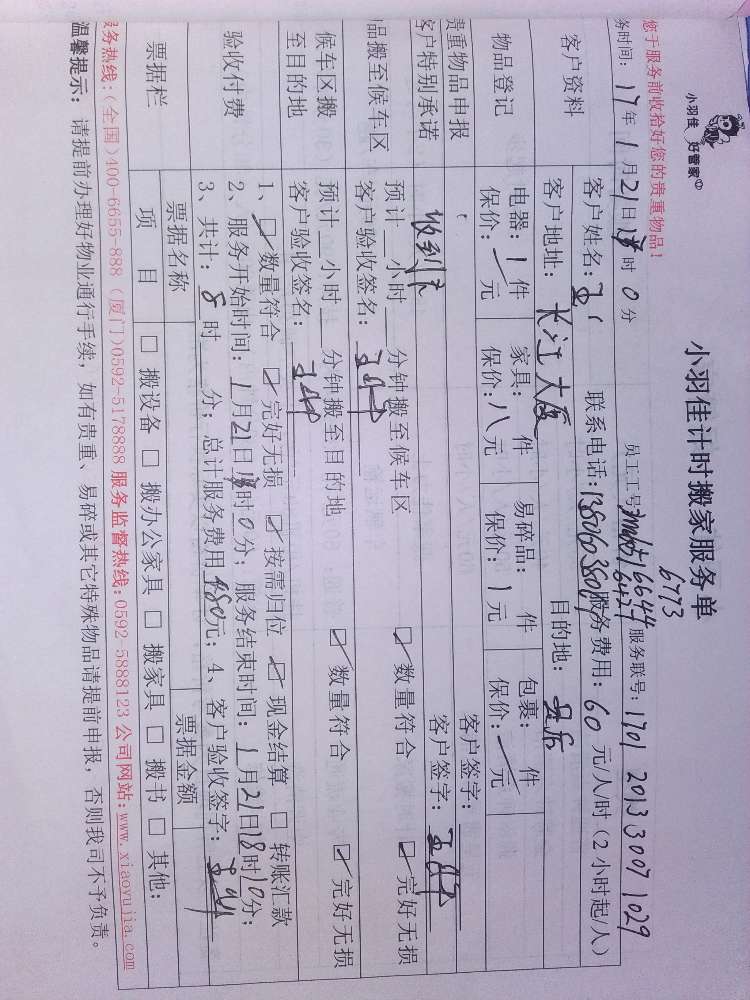 小羽佳 好管家
小羽佳计时搬家服务单
您于服务前收拾好您的贵重物品!
6773
务时间: 17年 1月21日 时 0分 员工工号 6644 服务联号: 1701 2013 3007 1029
6437
客户资料 客户姓名: 联系电话: 服务费用: 60 元/人/时 (2小时起/人)
客户地址: 长江大厦 目的地:
物品登记 电器: 1 件 家具: 件 易碎品: 件 包裹: 件
保价: 元 保价: 八 元 保价: 1 元 保价: 元
贵重物品申报 客户签字:
客户特别承诺 收到 客户签字:
品搬至候车区 预计 小时 分钟搬至候车区 ☑ 数量符合 ☑ 完好无损
客户验收签名:
候车区搬至目的地 预计 小时 分钟搬至目的地 ☑ 数量符合 ☑ 完好无损
客户验收签名:
验收付费 1、☑ 数量符合 ☑ 完好无损 ☑ 按需归位 ☑ 现金结算 □ 转账汇款
2、服务开始时间: 1月21日 时 0分; 服务结束时间: 1月21日18时10分;
3、共计: 8 时 分; 总计服务费用 480 元; 4、客户验收签字:
票据栏 票据名称 票据金额
项 目 □ 搬设备 □ 搬办公家具 □ 搬家具 □ 搬书 □ 其他:
务热线:(全国)400-6655-888 (厦门)0592-5178888 服务监督热线:0592-5888123 公司网站:www.xiaoyujia.com
温馨提示: 请提前办理好物业通行手续,如有贵重、易碎或其它特殊物品请提前申报,否则我司不予负责。